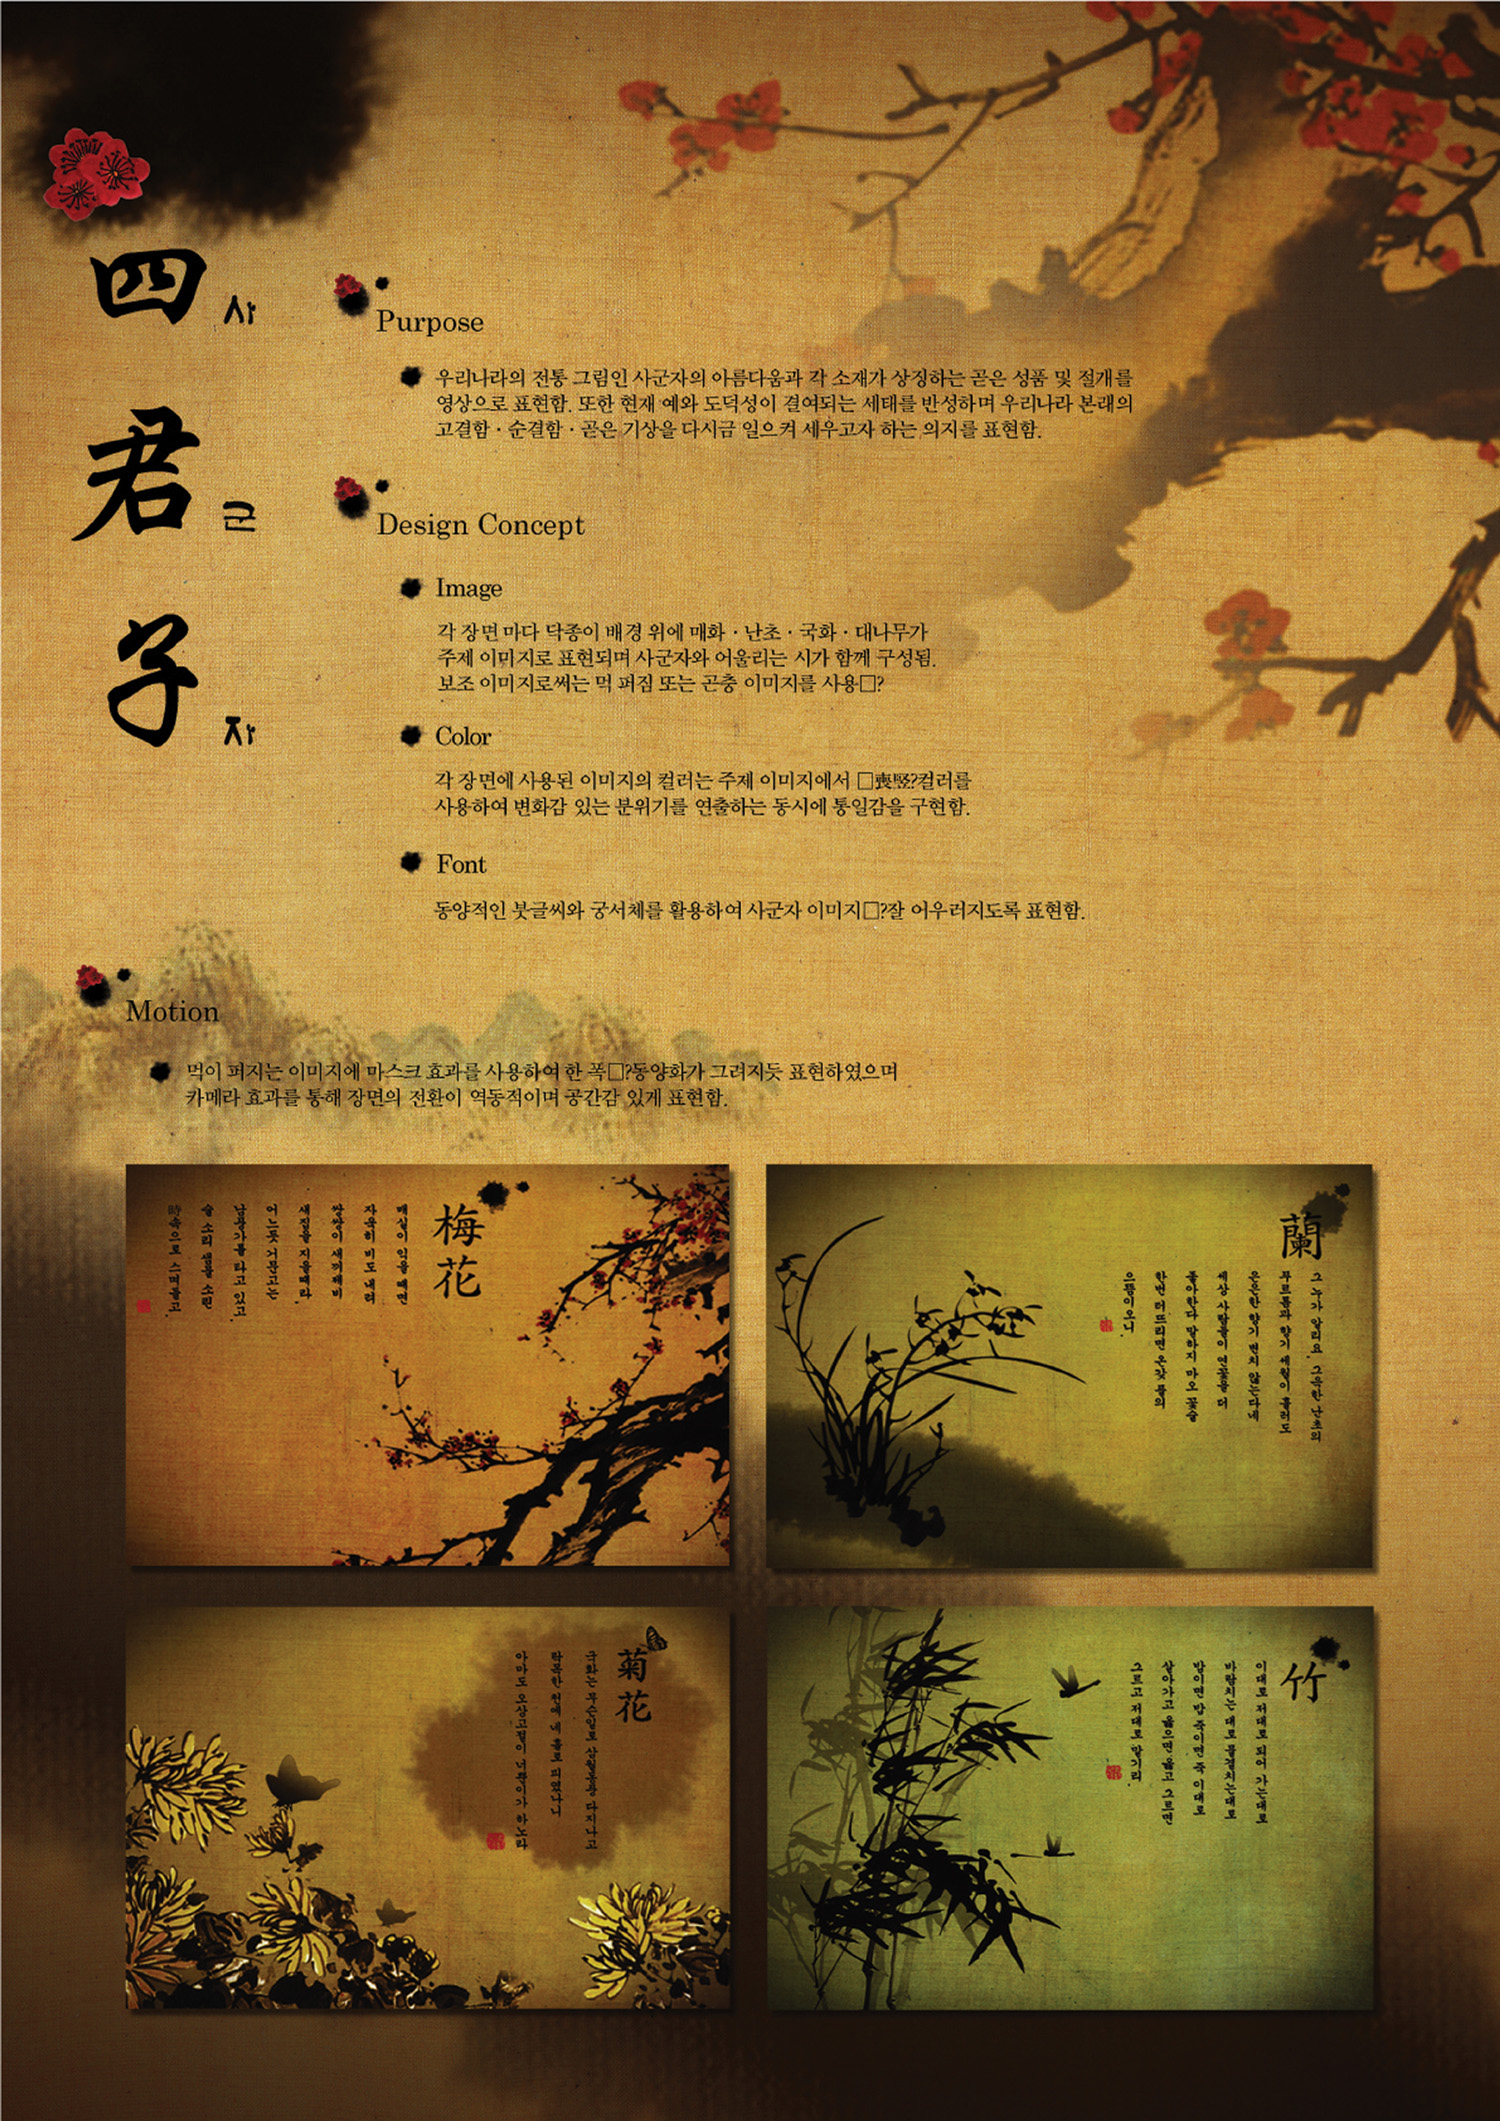 四 사
君 군
子 자
Purpose
우리나라의 전통 그림인 사군자의 아름다움과 각 소재가 상징하는 곧은 성품 및 절개를
영상으로 표현함. 또한 현재 예와 도덕성이 결여되는 세태를 반성하며 우리나라 본래의
고결함 · 순결함 · 곧은 기상을 다시금 일으켜 세우고자 하는 의지를 표현함.
Design Concept
Image
각 장면 마다 닥종이 배경 위에 매화 · 난초 · 국화 · 대나무가
주제 이미지로 표현되며 사군자와 어울리는 시가 함께 구성됨.
보조 이미지로써는 먹 퍼짐 또는 곤충 이미지를 사용□?
Color
각 장면에 사용된 이미지의 컬러는 주제 이미지에서 □喪竪?컬러를
사용하여 변화감 있는 분위기를 연출하는 동시에 통일감을 구현함.
Font
동양적인 붓글씨와 궁서체를 활용하여 사군자 이미지□?잘 어우러지도록 표현함.
Motion
먹이 퍼지는 이미지에 마스크 효과를 사용하여 한 폭□?동양화가 그려지듯 표현하였으며
카메라 효과를 통해 장면의 전환이 역동적이며 공간감 있게 표현함.
梅花
매실이 익을 때면
자욱히 비도 내려
쌍쌍이 새끼제비
새집을 지을때라.
어느듯 거문고는
남풍가를 타고 있고.
술 소리 샘물 소린
時속으로 스며들고.
蘭
그 누가 알리요. 그윽한 난초의
푸르름과 향기 세월이 흘러도
은은한 향기 변치 않는다네
세상 사람들이 연꽃을 더
좋아한다 말하지 마오 꽃술
한번 터뜨리면 온갖 풀의
으뜸이오니.
菊花
국화는 무슨일로 삼월동풍 다지나고
낙목한천에 네 홀로 피였나니
아마도 오상고절이 너뿐이가 하노라
竹
이대로 저대로 되어 가는대로
바람치는 대로 물결치는대로
밥이면 밥 죽이면 죽 이대로
살아가고 옳으면 옳고 그르면
그르고 저대로 맡기리.